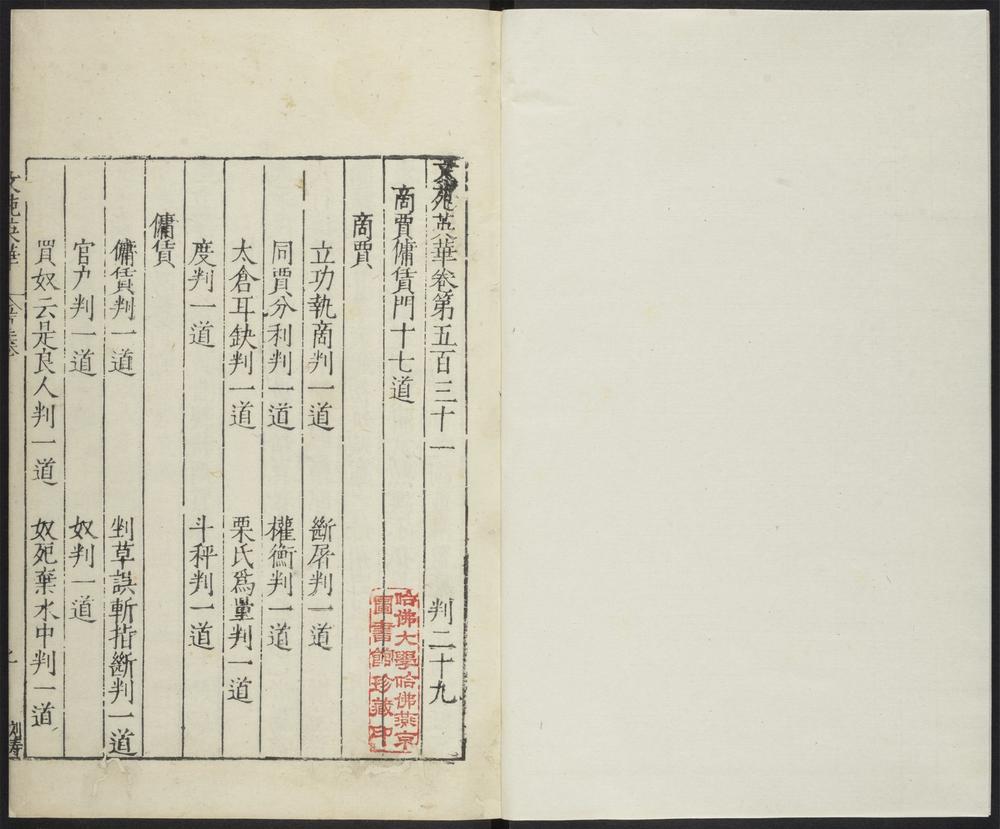 文苑英華卷第五百三十一　判二十九
商賈傭賃門十七道
商賈
立功執商判一道　斷屠判一道
同賈分利判一道　權衡判一道
太倉耳鈌判一道　栗氏爲量判一道
度判一道　斗秤判一道
傭賃
傭賃判一道　剉草誤斬指斷判一道
官户判一道　奴判一道
買奴云是良人判一道　奴死棄水中判一道
文苑英華
哈佛大學哈佛燕京
圖書館珍藏印